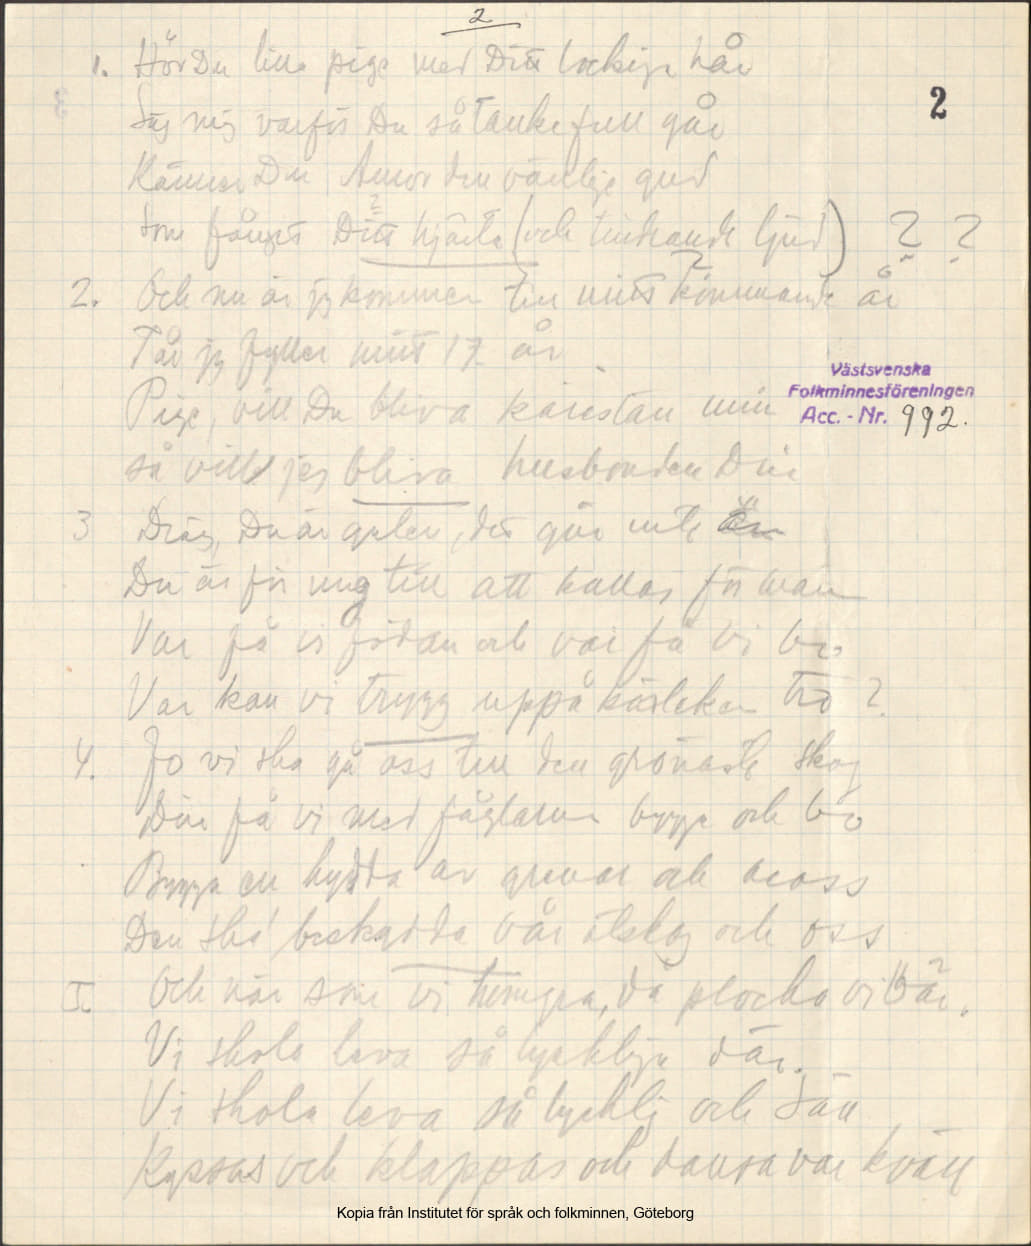 2
1. Hör Du lilla piga med Ditt lockiga hår
2
Säg mig varför Du så tankefull går
Känner Du Amor den vänlige gud
Som fånget Ditt hjärta (och tindrande ljud) ? ?
2. Och nu är jag kommen till mitt kommande år
Får jag fyller mitt 17 år
Västsvenska
Folkminnesföreningen
Acc. - Nr. 992.
Piga, vill Du bliva kärestan min
så vill jag bliva husbonden Din
3 Dräng, Du är galen, det går inte än
Du är för ung till att kallas för man
Var få vi födan och var få vi bo
Var kan vi trygg uppå kärleken tro ?
4. Jo vi ska gå oss till den grönaste skog
Där få vi med fåglarna bygga och bo
Bygga en hydda av grenar och
Den ska beskydda vår älskog och oss
Och när som vi hungra, då plocka vi Bär.
Vi skola leva så lyckliga där.
Vi skola leva så lycklig och säll
Kyssas och klappas och dansa var kväll
Kopia från Institutet för språk och folkminnen, Göteborg